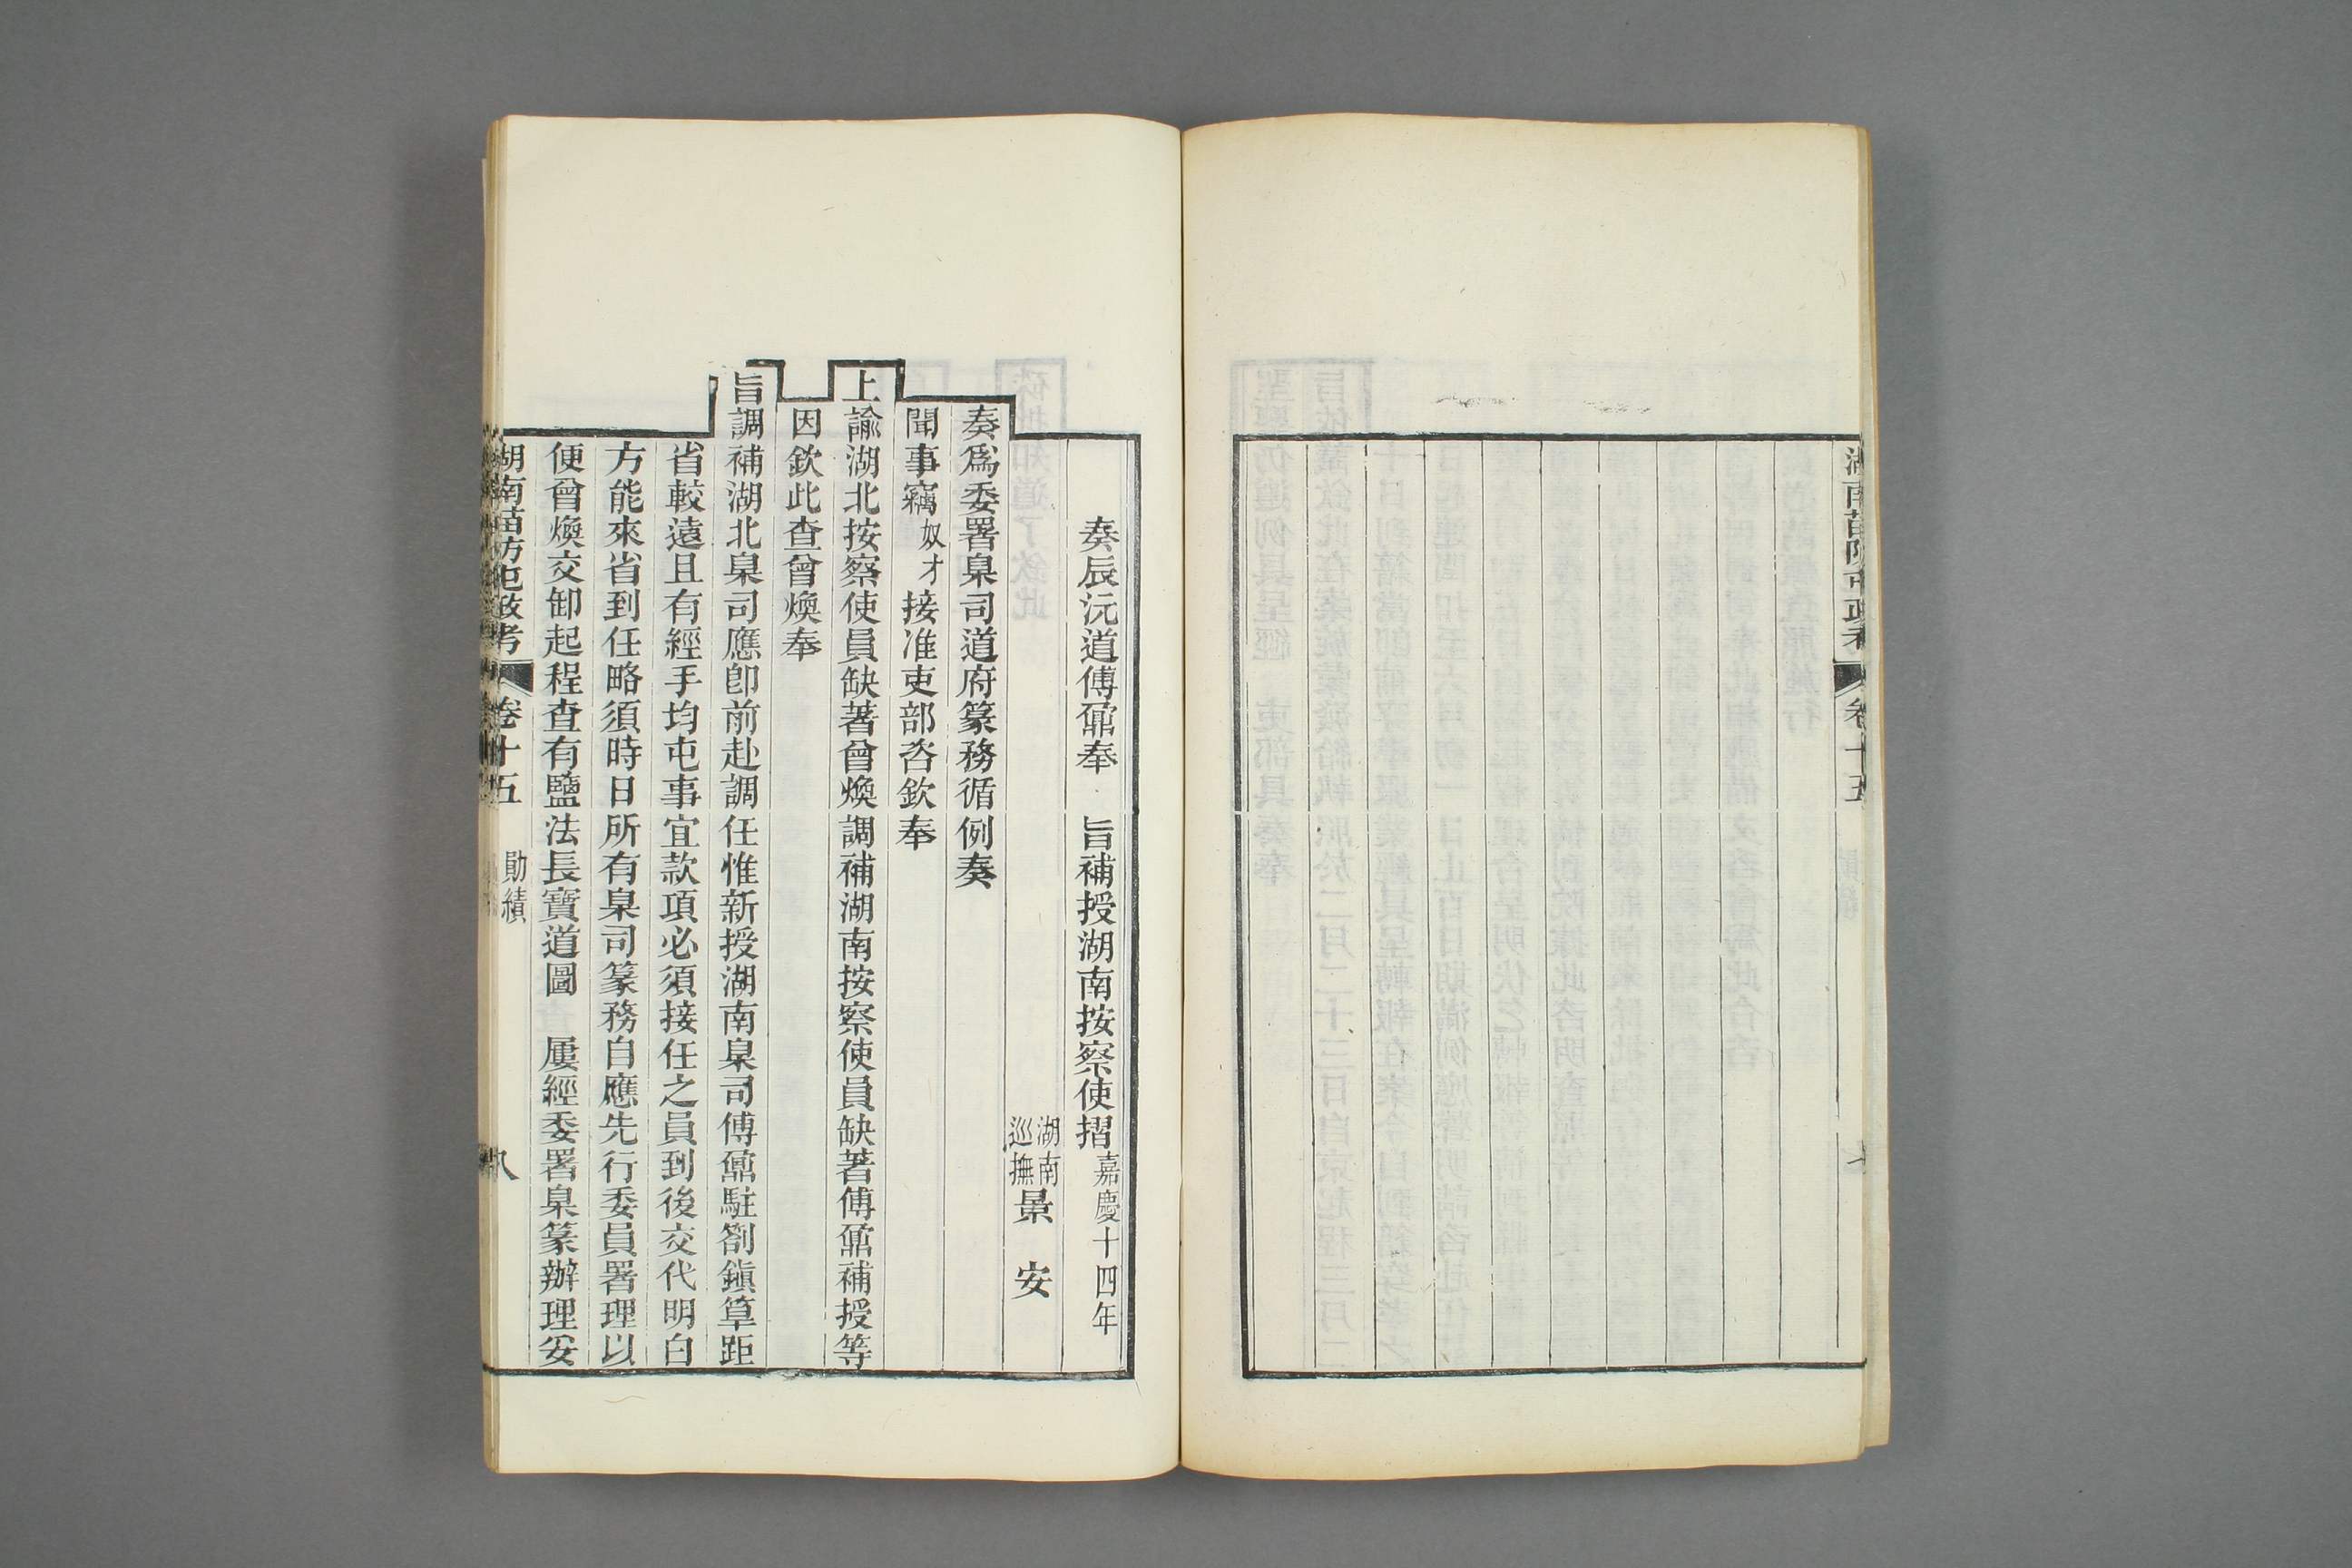 湖南苗防屯政考 卷十五 勛績 七
奏辰沅道傅鼐奉 旨補授湖南按察使摺嘉慶十四年
湖南巡撫景 安
奏爲委署臬司道府篆務循例奏
聞事竊奴才接准吏部咨欽奉
上諭湖北按察使員缺著曾燠調補湖南按察使員缺著傅鼐補授等
因欽此查曾燠奉
旨調補湖北臬司應卽前赴調任惟新授湖南臬司傅鼐駐劄鎭筸距
省較遠且有經手均屯事宜款項必須接任之員到後交代明白
方能來省到任略須時日所有臬司篆務自應先行委員署理以
便曾燠交卸起程查有鹽法長寶道圖 屢經委署臬篆辦理妥
湖南苗防屯政考 卷十五 勛績 八